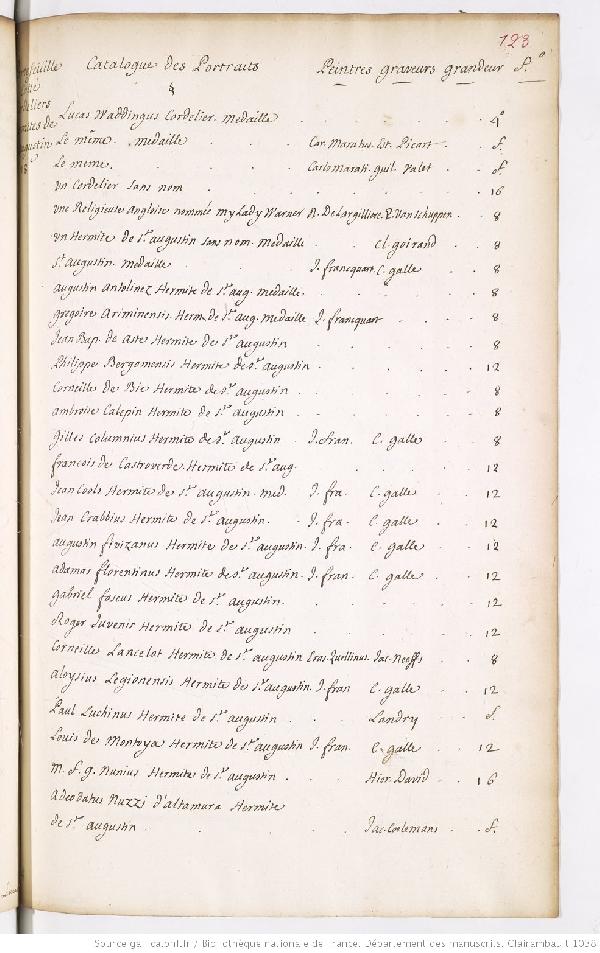 123
Catalogue des Portraits Peintres graveurs grandeur f.º
Lucas Waddingus Cordelier medaille 4º
Le même medaille Car. Maratus. Est. Picart f.
Le meme. Carlo Marati. guil. Valet f.
un Cordelier sans nom 16
une Religieuse Angloise nommée my Lady Warner N. De Largilliere. P. Van Schuppen. 8
un Hermite de st. augustin sans nom. medaille Cl. goirand 8
st. augustin. medaille J. francquart C. galle 8
augustin Antolinez Hermite de st. aug. medaille. 8
gregoire Ariminensis Herm. de st. aug. medaille J. francquart 8
Jean Bap. de Aste Hermite de st. augustin 8
Philippe Bergomensis Hermite de st. augustin 12
Corneille de Bie Hermite de st. augustin 8
ambroise Calepin Hermite de st. augustin 8
gilles Columnius Hermite de st. augustin J. fran. C. galle 8
francois de Castroverde. Hermite de st. aug. 12
Jean Cools Hermite de st. augustin. med. J. fra. C. galle 12
Jean Crabbius Hermite de st. augustin. J. fra. C. galle 12
augustin fivizanus Hermite de st. augustin. J. fra. C. galle 12
adamas florentinus Hermite de st. augustin. J. fran. C. galle 12
gabriel foscus Hermite de st. augustin. 12
Roger Juvenis Hermite de st. augustin 12
Corneille Lancelot Hermite de st. augustin Eras. Quillinus. Jac. Neeffs 8
aloysius Legionensis Hermite de st. augustin. J. fran C. galle 12
Paul Luchinus Hermite de st. augustin Landry f.
Louis de Montoya Hermite de st. augustin J. fran. C. galle 12
M. f. g. Nunius Hermite de st. augustin Hier. David 16
adeodatus Nuzzi d'altamura Hermite
de st. augustin Jac. Coelemans f.
Source gallica.bnf.fr / Bibliothèque nationale de France. Département des manuscrits. Clairambault 1038